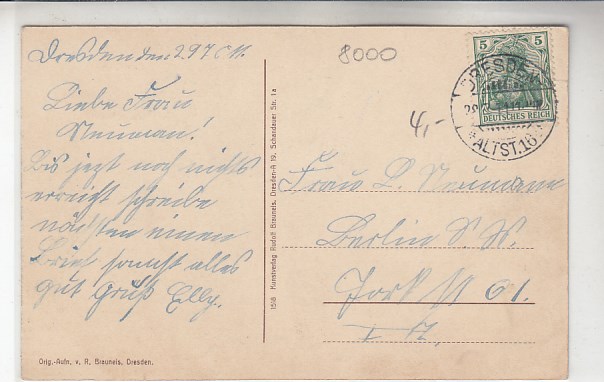 Dresden den 29 7 11.
Liebe Frau
Neuman!
Bis jezt noch nichts
erreicht schreibe
nächsten einen
Brief sonst alles
gut Gruß Elly.
Orig.-Aufn. v. R. Brauneis, Dresden.
1518 Kunstverlag Rudolf Brauneis, Dresden-A 19, Schandauer Str. 1a
8000
4,-
5 5
DEUTSCHES REICH
DRESDEN
ALTST. 16
Frau L. Neumann
Berlin S W.
York St 61.
I Tr.